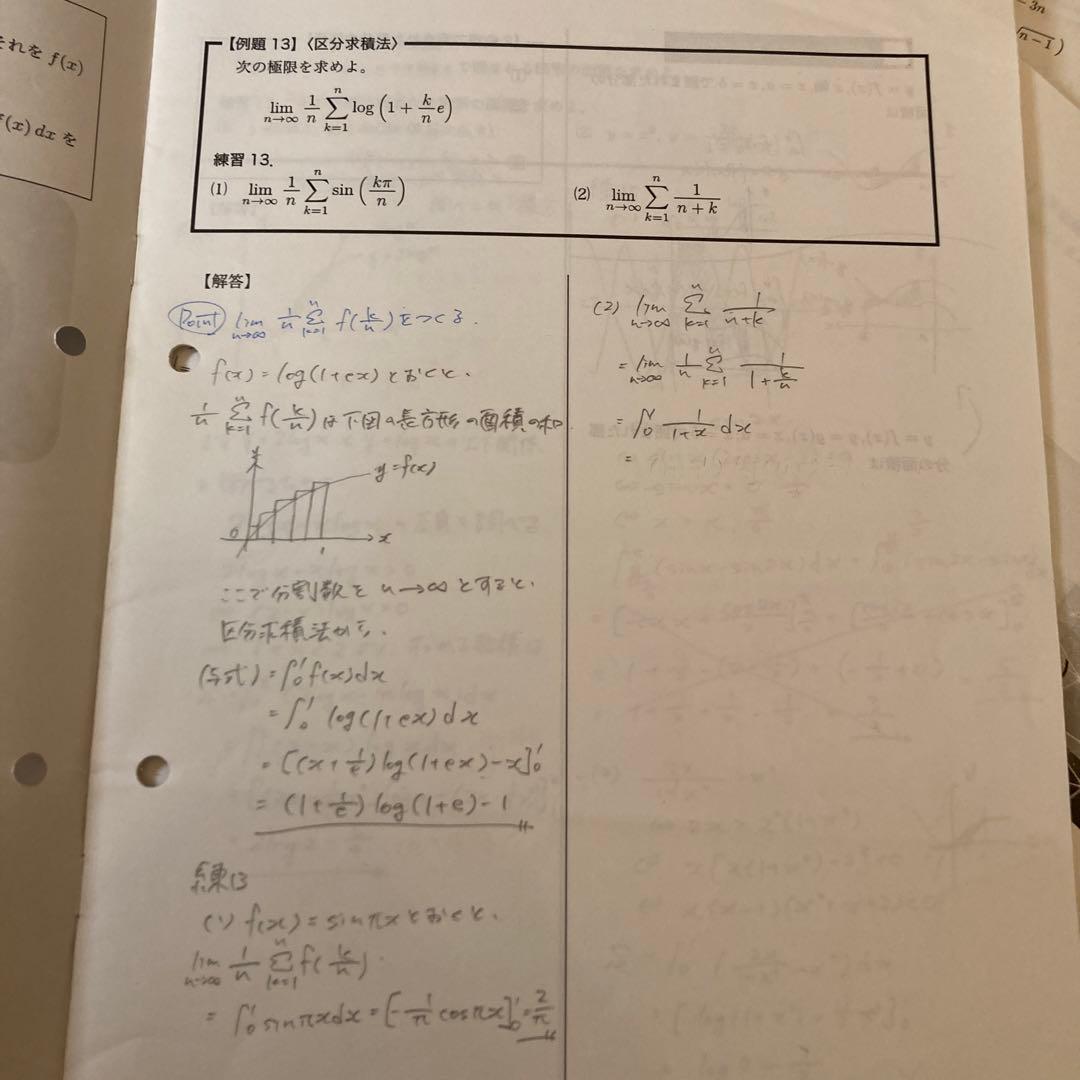 それを f(x)
f(x) dx を
3n
√n−1)
【例題 13】〈区分求積法〉
次の極限を求めよ。
lim_{n→∞} 1/n Σ_{k=1}^{n} log (1 + k/n e)
練習 13.
(1) lim_{n→∞} 1/n Σ_{k=1}^{n} sin (kπ/n)
(2) lim_{n→∞} Σ_{k=1}^{n} 1/(n + k)
【解答】
Point lim_{n→∞} 1/n Σ_{k=1}^{n} f(k/n) をつくる.
f(x) = log(1+ex) とおくと、
1/n Σ_{k=1}^{n} f(k/n) は下図の長方形の面積の和
y
y=f(x)
0
1
x
ここで分割数を n→∞ とすると、
区分求積法から、
(与式) = ∫_0^1 f(x)dx
= ∫_0^1 log(1+ex)dx
= [(x+1/e)log(1+ex)−x]_0^1
= (1+1/e)log(1+e)−1
練13
(1) f(x) = sinπx とおくと、
lim_{n→∞} 1/n Σ_{k=1}^{n} f(k/n)
= ∫_0^1 sinπxdx = [−1/π cosπx]_0^1 = 2/π
(2) lim_{n→∞} Σ_{k=1}^{n} 1/(n+k)
= lim_{n→∞} 1/n Σ_{k=1}^{n} 1/(1+k/n)
= ∫_0^1 1/(1+x) dx
=